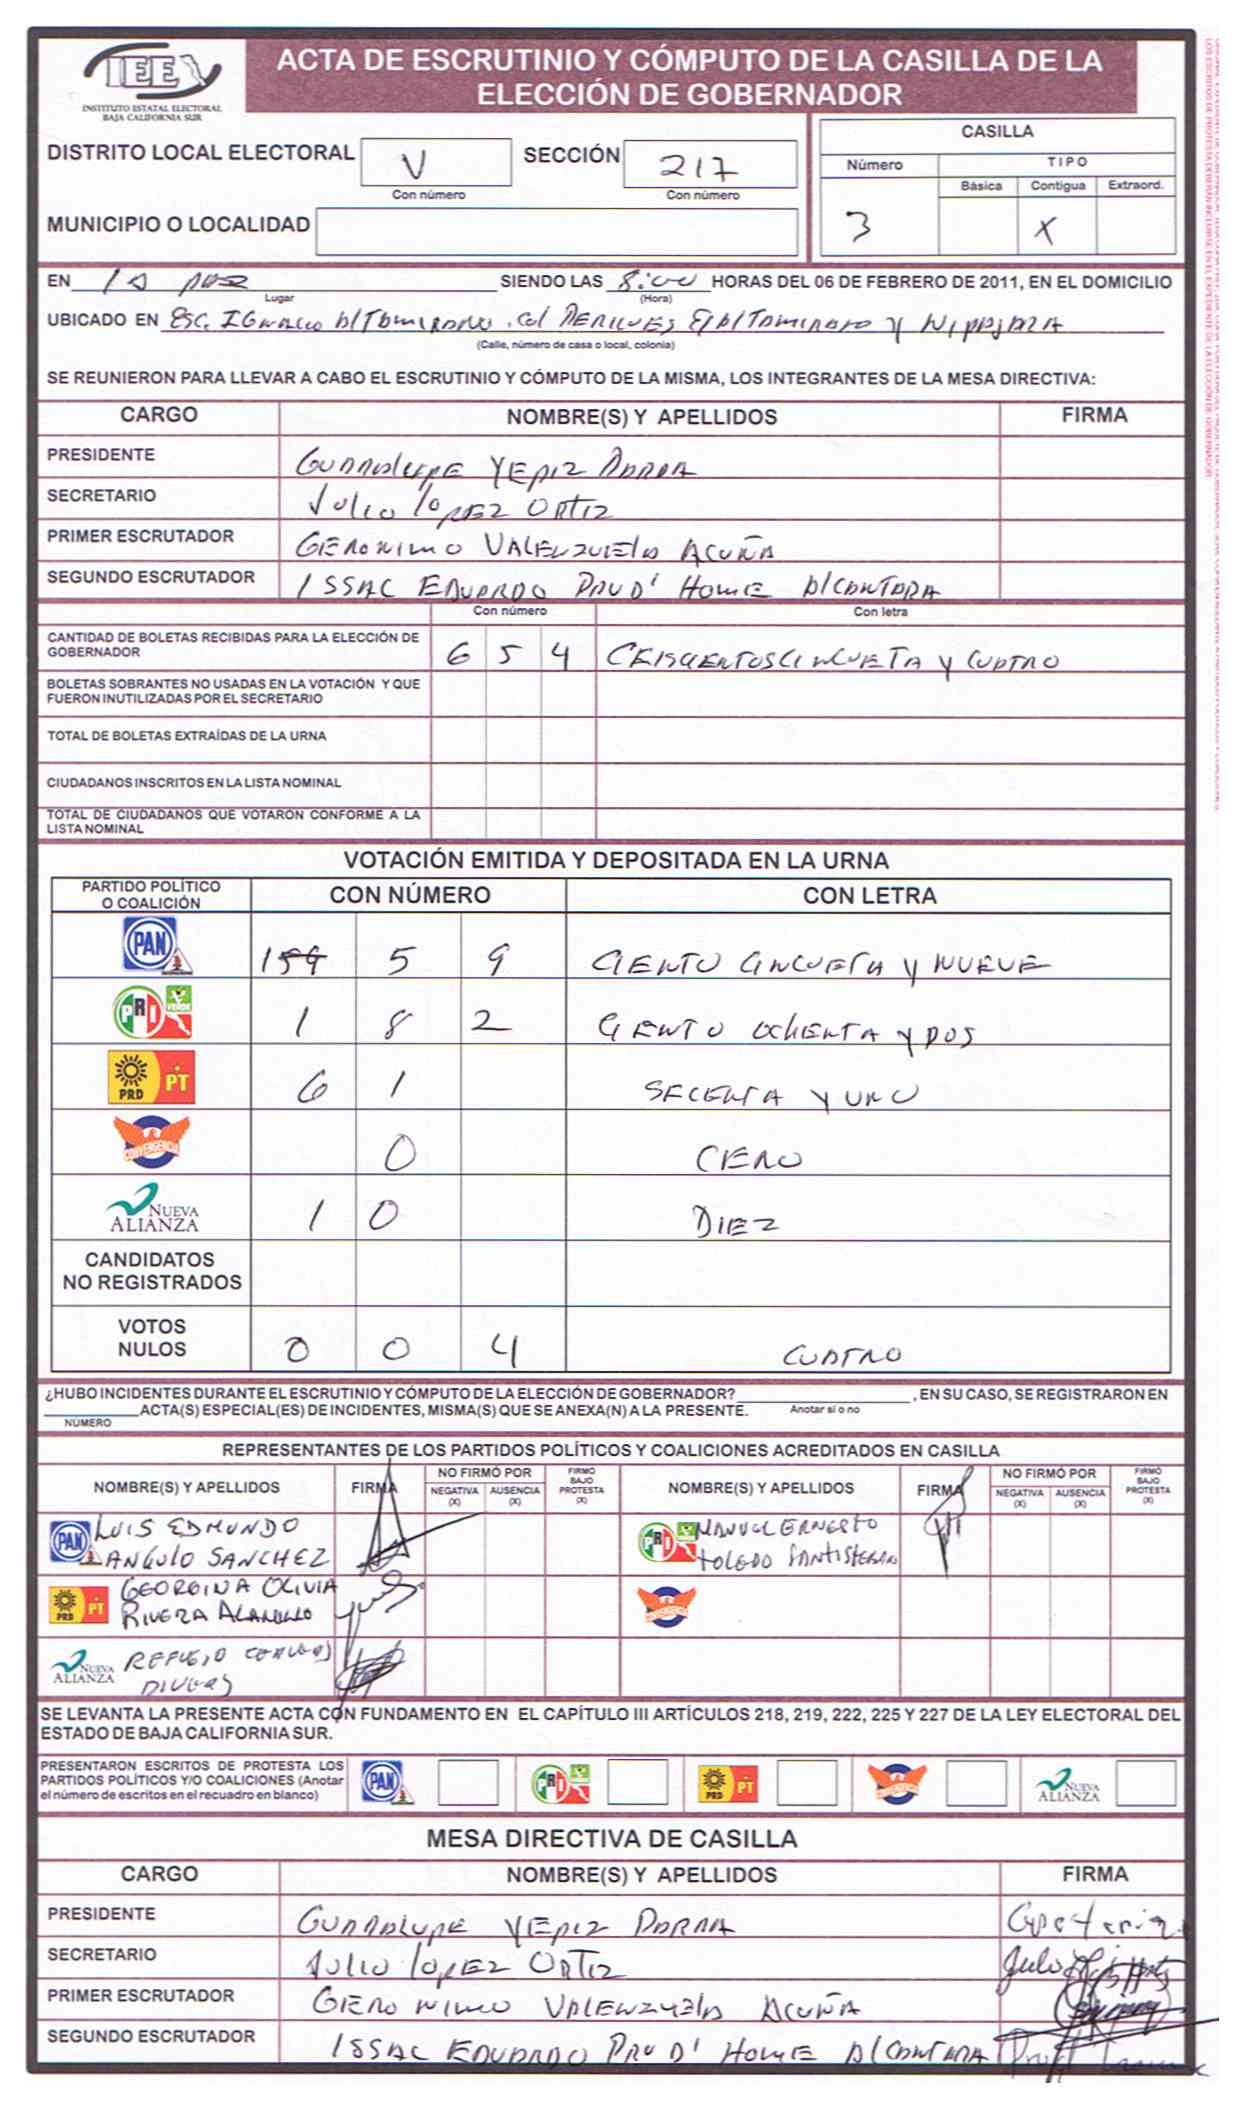 IEE
INSTITUTO ESTATAL ELECTORAL
BAJA CALIFORNIA SUR
ACTA DE ESCRUTINIO Y CÓMPUTO DE LA CASILLA DE LA
ELECCIÓN DE GOBERNADOR
DISTRITO LOCAL ELECTORAL V SECCIÓN 217
Con número Con número
MUNICIPIO O LOCALIDAD
CASILLA
Número TIPO
Básica Contigua Extraord.
3 X
EN la paz SIENDO LAS 8:00 HORAS DEL 06 DE FEBRERO DE 2011, EN EL DOMICILIO
Lugar (Hora)
UBICADO EN Esc. IGnacio AlTamirano .col PERICUES E/AlTamirano y
(Calle, número de casa o local, colonia)
SE REUNIERON PARA LLEVAR A CABO EL ESCRUTINIO Y CÓMPUTO DE LA MISMA, LOS INTEGRANTES DE LA MESA DIRECTIVA:
CARGO NOMBRE(S) Y APELLIDOS FIRMA
PRESIDENTE GUADALUPE YEPIZ PARRA
SECRETARIO Julio lopez ORTIZ
PRIMER ESCRUTADOR GERONIMO VALENZUELA ACUÑA
SEGUNDO ESCRUTADOR ISSAC EDUARDO PRUD' HOMIE AlCANTARA
Con número Con letra
CANTIDAD DE BOLETAS RECIBIDAS PARA LA ELECCIÓN DE
GOBERNADOR 6 5 4 CEISCIENTOSCINCUETA y CUATRO
BOLETAS SOBRANTES NO USADAS EN LA VOTACIÓN Y QUE
FUERON INUTILIZADAS POR EL SECRETARIO
TOTAL DE BOLETAS EXTRAÍDAS DE LA URNA
CIUDADANOS INSCRITOS EN LA LISTA NOMINAL
TOTAL DE CIUDADANOS QUE VOTARON CONFORME A LA
LISTA NOMINAL
VOTACIÓN EMITIDA Y DEPOSITADA EN LA URNA
PARTIDO POLÍTICO
O COALICIÓN CON NÚMERO CON LETRA
PAN 159 5 9 CIENTO CINCUETA y NUEVE
PRI VERDE 1 8 2 CIENTO OCHENTA y DOS
PRD PT 6 1 SECENTA Y UNO
CONVERGENCIA 0 CERO
NUEVA ALIANZA 1 0 DIEZ
CANDIDATOS
NO REGISTRADOS
VOTOS
NULOS 0 0 4 CUATRO
¿HUBO INCIDENTES DURANTE EL ESCRUTINIO Y CÓMPUTO DE LA ELECCIÓN DE GOBERNADOR? , EN SU CASO, SE REGISTRARON EN
ACTA(S) ESPECIAL(ES) DE INCIDENTES, MISMA(S) QUE SE ANEXA(N) A LA PRESENTE. Anotar sí o no
NÚMERO
REPRESENTANTES DE LOS PARTIDOS POLÍTICOS Y COALICIONES ACREDITADOS EN CASILLA
NOMBRE(S) Y APELLIDOS FIRMA NO FIRMÓ POR NEGATIVA (X) AUSENCIA (X) FIRMÓ BAJO PROTESTA (X) NOMBRE(S) Y APELLIDOS FIRMA NO FIRMÓ POR NEGATIVA (X) AUSENCIA (X) FIRMÓ BAJO PROTESTA (X)
PAN LUIS EDMUNDO PRI MANUEL ERNESTO
ANGULO SANCHEZ TOLEDO SANTISTEBAN
PRD PT GEORGINA OLIVIA CONVERGENCIA
RIVERA
NUEVA ALIANZA REFUGIO
SE LEVANTA LA PRESENTE ACTA CON FUNDAMENTO EN EL CAPÍTULO III ARTÍCULOS 218, 219, 222, 225 Y 227 DE LA LEY ELECTORAL DEL
ESTADO DE BAJA CALIFORNIA SUR.
PRESENTARON ESCRITOS DE PROTESTA LOS
PARTIDOS POLÍTICOS Y/O COALICIONES (Anotar
el número de escritos en el recuadro en blanco) PAN PRI PRD PT CONVERGENCIA NUEVA ALIANZA
MESA DIRECTIVA DE CASILLA
CARGO NOMBRE(S) Y APELLIDOS FIRMA
PRESIDENTE GUADALUPE YEPIZ PARRA
SECRETARIO Julio lopez ORTIZ
PRIMER ESCRUTADOR GERONIMO VALENZUELA ACUÑA
SEGUNDO ESCRUTADOR ISSAC EDUARDO PRUD' HOMIE AlCANTARA